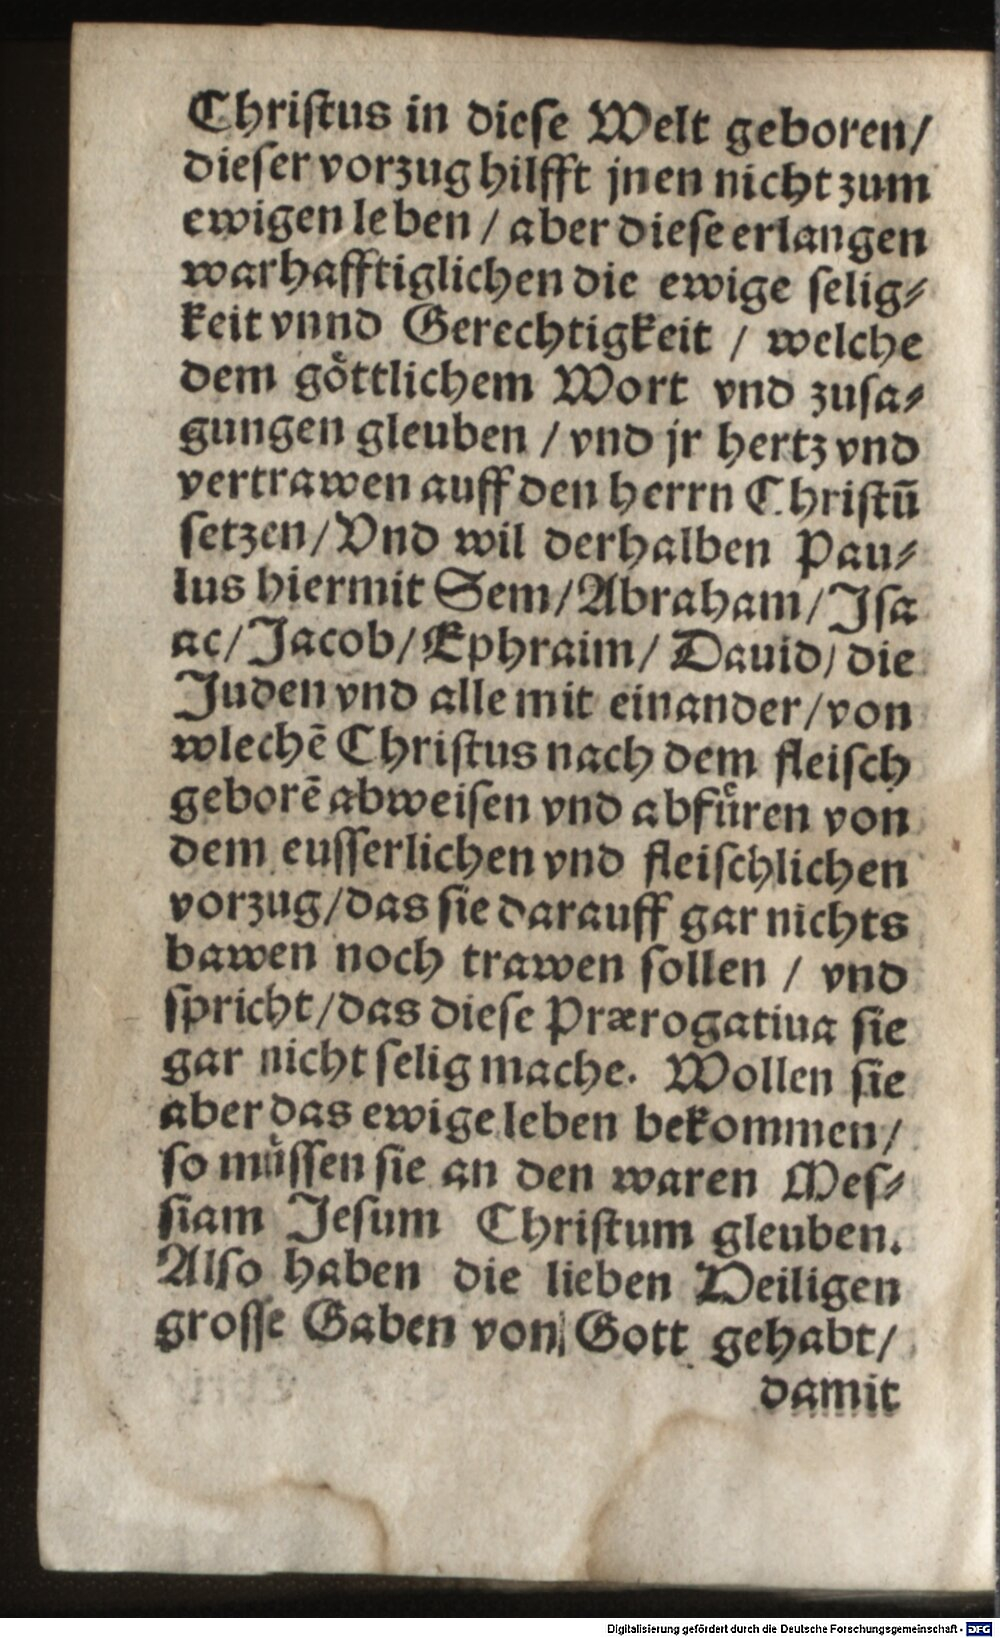 Christus in diese Welt geboren/
dieser vorzug hilfft jnen nicht zum
ewigen leben / aber diese erlangen
warhafftiglichen die ewige selig⸗
keit vnnd Gerechtigkeit / welche
dem goͤttlichem Wort vnd zusa⸗
gungen gleuben / vnd jr hertz vnd
vertrawen auff den herrn Christū
setzen/Vnd wil derhalben Pau⸗
lus hiermit Sem/Abraham/Isa
ac/Jacob/Ephraim/ Dauid/ die
Juden vnd alle mit einander/von
wlechē Christus nach dem fleisch
geborē abweisen vnd abfuͤren von
dem eusserlichen vnd fleischlichen
vorzug/das sie darauff gar nichts
bawen noch trawen sollen / vnd
spricht/das diese Prærogatiua sie
gar nicht selig mache. Wollen sie
aber das ewige leben bekommen/
so muͤssen sie an den waren Mes⸗
siam Jesum Christum gleuben.
Also haben die lieben Heiligen
grosse Gaben von Gott gehabt/
damit
Digitalisierung gefördert durch die Deutsche Forschungsgemeinschaft - DFG